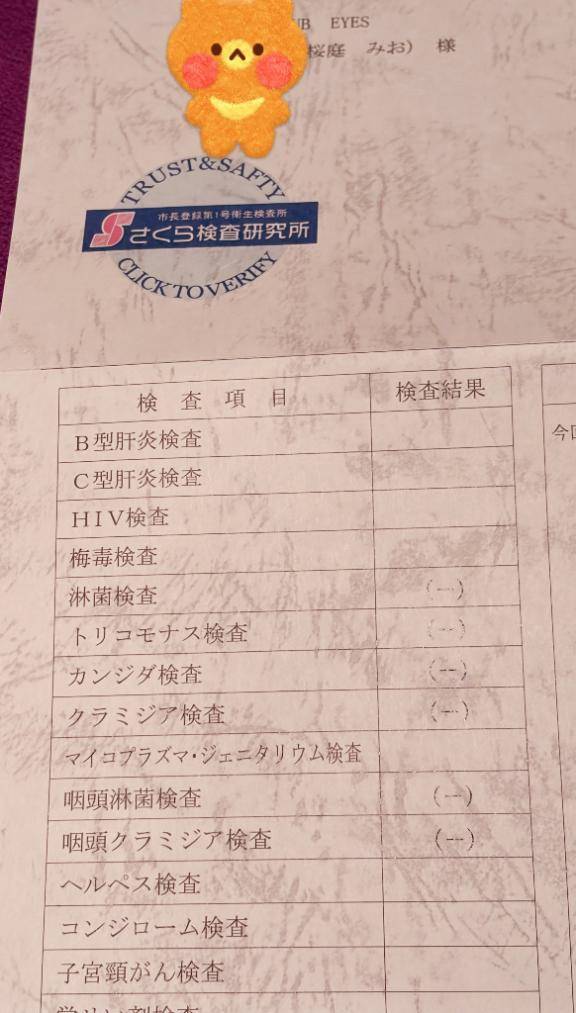 EYES
桜庭 みお) 様
TRUST&SAFTY
市長登録第1号衛生検査所
S さくら検査研究所
CLICK TO VERIFY
検査項目 検査結果
B型肝炎検査
C型肝炎検査
HIV検査
梅毒検査
淋菌検査 (--)
トリコモナス検査 (--)
カンジダ検査 (--)
クラミジア検査 (--)
マイコプラズマ・ジェニタリウム検査
咽頭淋菌検査 (--)
咽頭クラミジア検査 (--)
ヘルペス検査
コンジローム検査
子宮頸がん検査
今